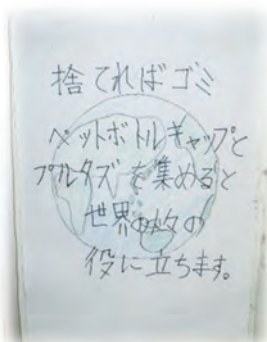 捨てればゴミ
ペットボトルキャップと
プルタブを集めると
世界の方々の
役に立ちます。